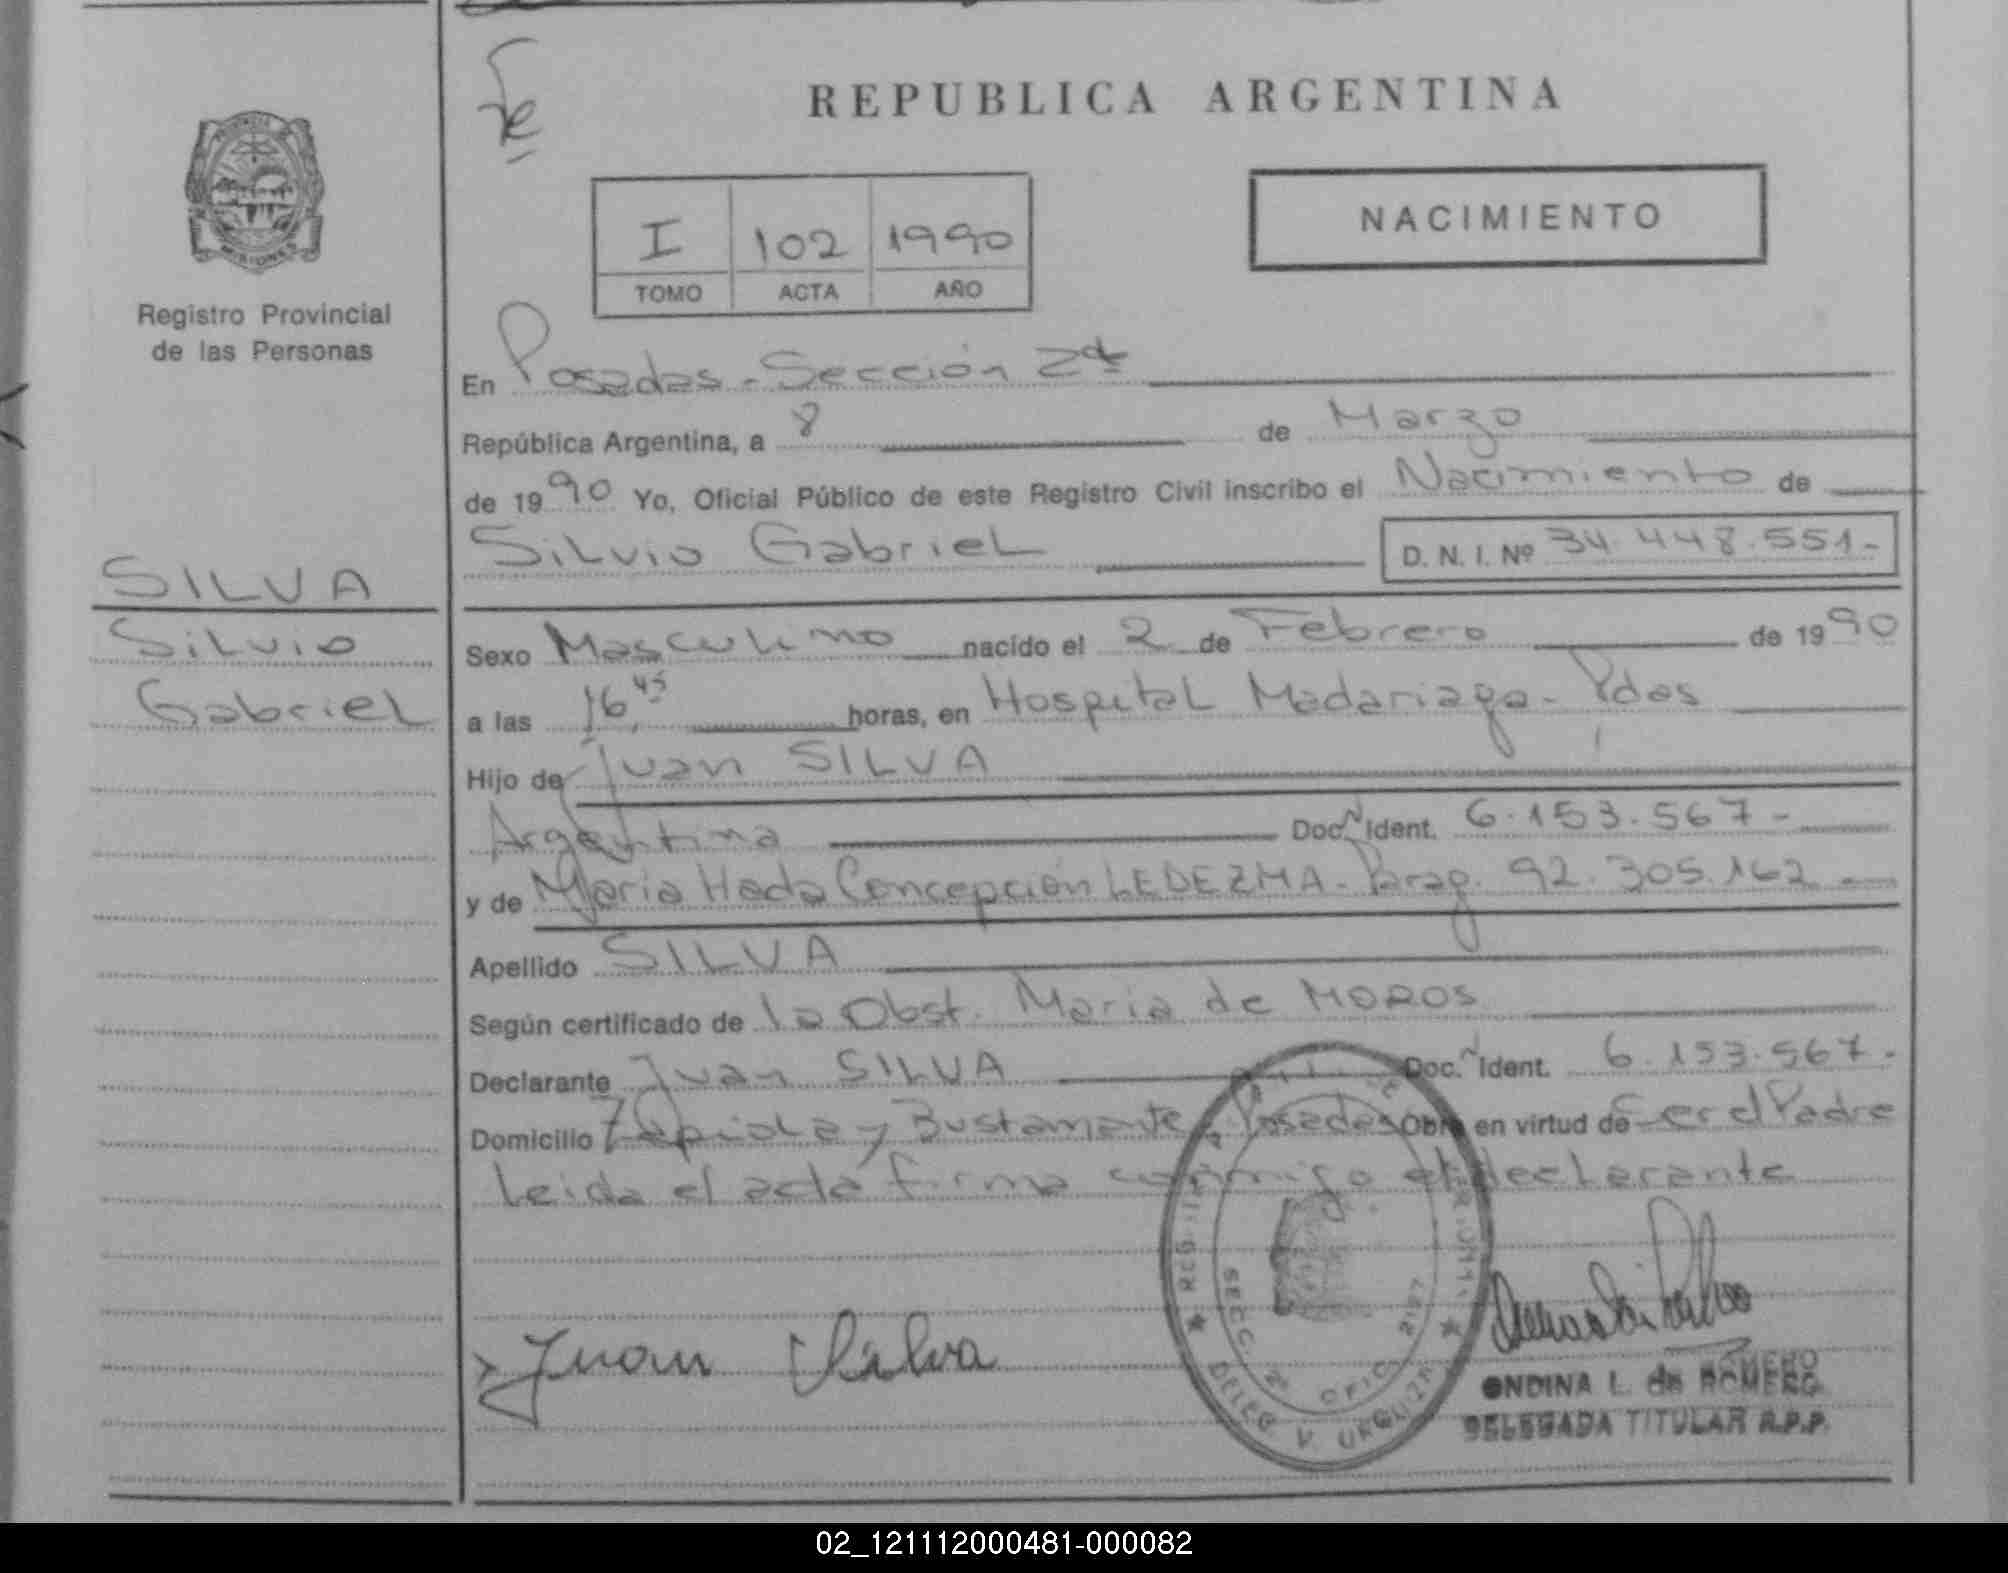 REPUBLICA ARGENTINA
PROVINCIA DE
MISIONES
Registro Provincial
de las Personas
I 102 1990
TOMO ACTA AÑO
NACIMIENTO
En Posadas - Sección 2da
República Argentina, a 8 de Marzo
de 1990 Yo, Oficial Público de este Registro Civil inscribo el Nacimiento de
Silvio Gabriel D. N. I. Nº 34.448.551.-
SILVA
Silvio
Gabriel
Sexo Masculino nacido el 2 de Febrero de 1990
a las 16,45 horas, en Hospital Madariaga - Pdas
Hijo de Juan SILVA
Argentina Doc. Ident. 6.153.567-
y de Maria Heda Concepción LEDEZMA - Parag. 92.305.162
Apellido SILVA
Según certificado de la Obst. Maria de MOROS
Declarante Juan SILVA Doc. Ident. 6.153.567.
Domicilio Zapiola y Bustamante, Posadas Obra en virtud de Ser el Padre
Leida el acta firma conmigo el declarante
Juan Silva
SECC. 2ª OFIC.
DELEG. V. URQUIZA
ONDINA L. de ROMERO
DELEGADA TITULAR R.P.P.
02_121112000481-000082